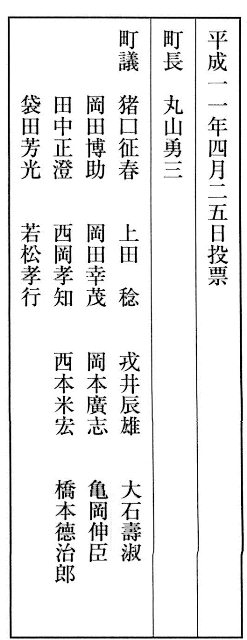 平成一一年四月二五日投票
町長　丸山勇三
町議　猪口征春　上田　稔　戎井辰雄　大石壽淑
岡田博助　岡田幸茂　岡本廣志　亀岡伸臣
田中正澄　西岡孝知　西本米宏　橋本德治郎
袋田芳光　若松孝行